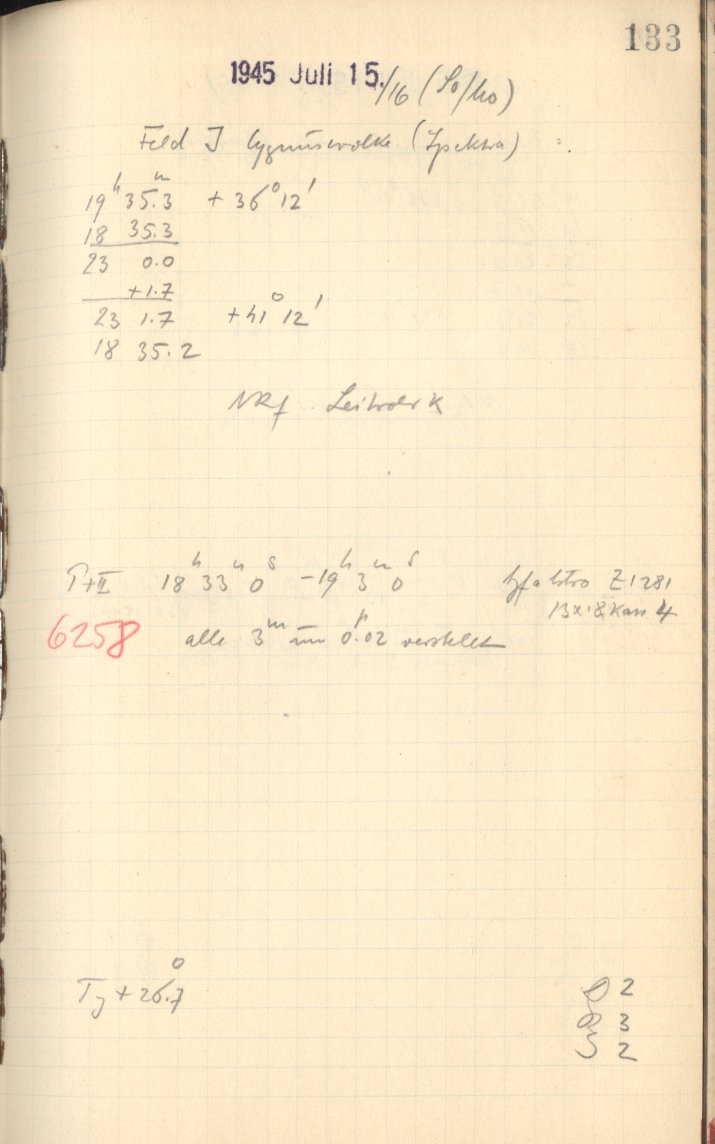 133
1945 Juli 15./16 (So/Mo)
Feld I Cygnuswolke (Spektra)
19ʰ 35.3ᵐ + 36° 12'
18 35.3
23 0.0
+1.7
23 1.7 +41° 12'
18 35.2
18ʰ 33ᵐ 0ˢ -19ʰ 3ᵐ 0ˢ Agfa Astro Z1281
13x18 Kass 4
6258 alle 3ᵐ um 0.02 verstellt
+ 26.7°
2
3
2